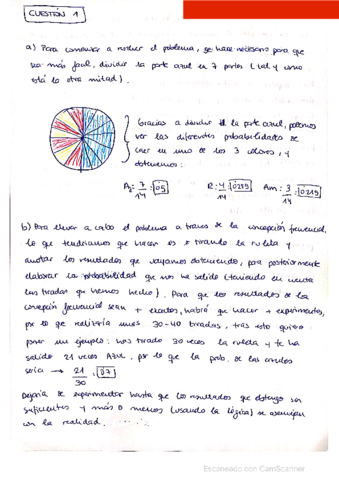 CUESTIÓN 1
a) Para comenzar a resolver el problema, se hace necesario para que
sea más fácil, dividir la parte azul en 7 partes (tal y como
está la otra mitad).
Gracias a dividir la parte azul, podemos
ver las diferentes probabilidades de
caer en uno de los 3 colores, y
obtenemos:
Az: 7/14 = 0'5 R: 4/14 = 0'285 Am: 3/14 = 0'215
b) Para llevar a cabo el problema a través de la concepción frecuencial,
lo que tendríamos que hacer es ir tirando la ruleta y
anotar los resultados que vayamos obteniendo, para posteriormente
elaborar la probabilidad que nos ha salido (teniendo en cuenta
las tiradas que hemos hecho). Para que los resultados de la
concepción frecuencial sean + exactos, habrá que hacer + experimentos,
por lo que realizaría unas 30-40 tiradas, tras esto quiero
poner un ejemplo: has tirado 30 veces la ruleta y te ha
salido 21 veces AZUL, por lo que la prob. de las
sería → 21/30 = 0'7
Dejaría de experimentar hasta que los resultados que obtengo son
suficientes y más o menos (usando la lógica) se asemejan
con la realidad.
Escaneado con CamScanner